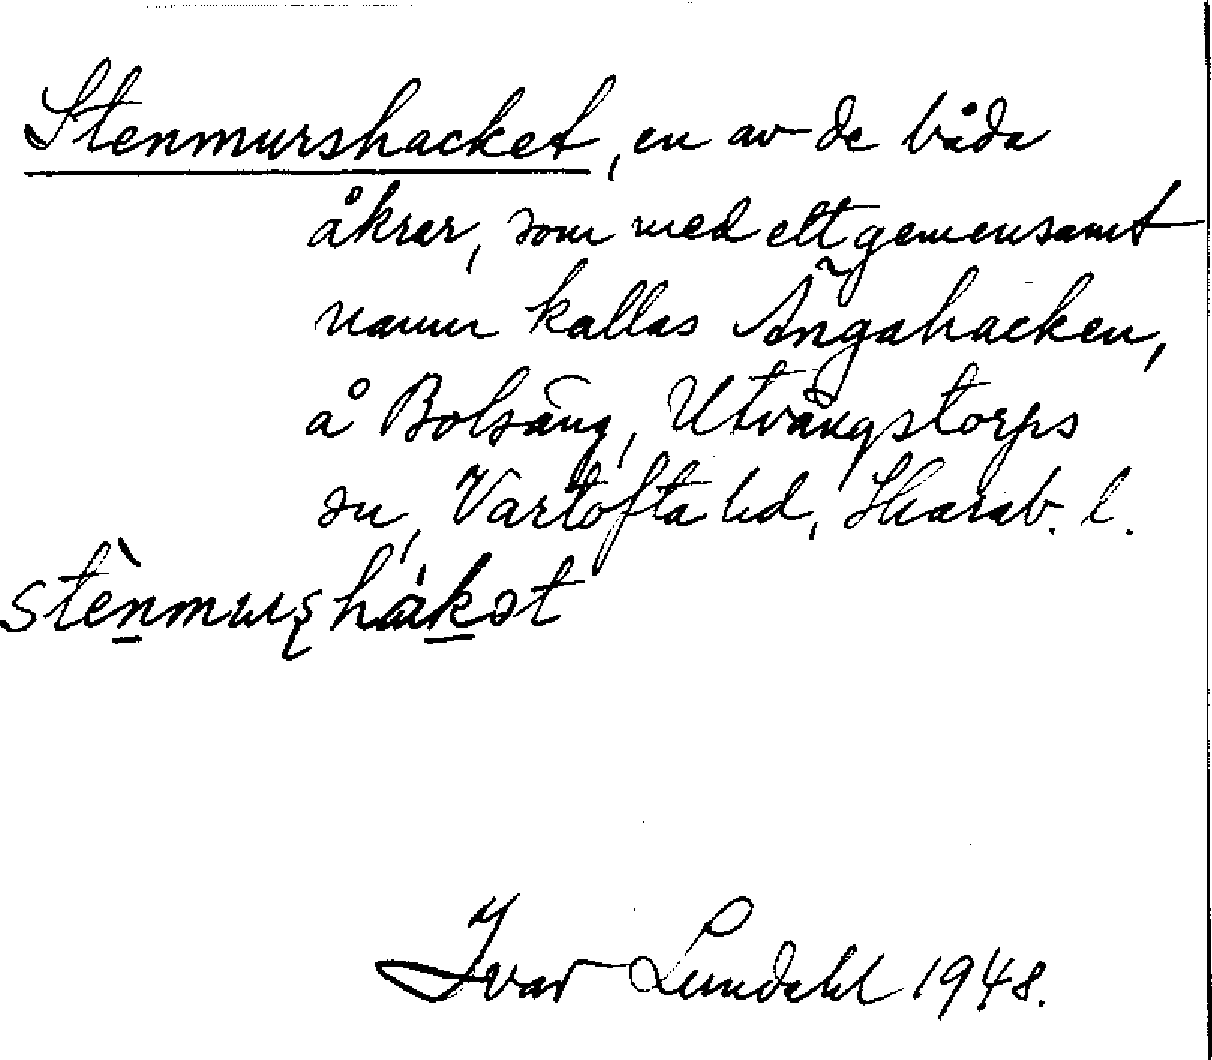 Stenmurshacket, en av de båda
åkrar, som med ett gemensamt
namn kallas Ängahacken,
å Bolsäng, Utvängstorps
sn, Vartofta hd, Skarab. l.
stènmuʂhákət
Ivar Lundahl 1948.